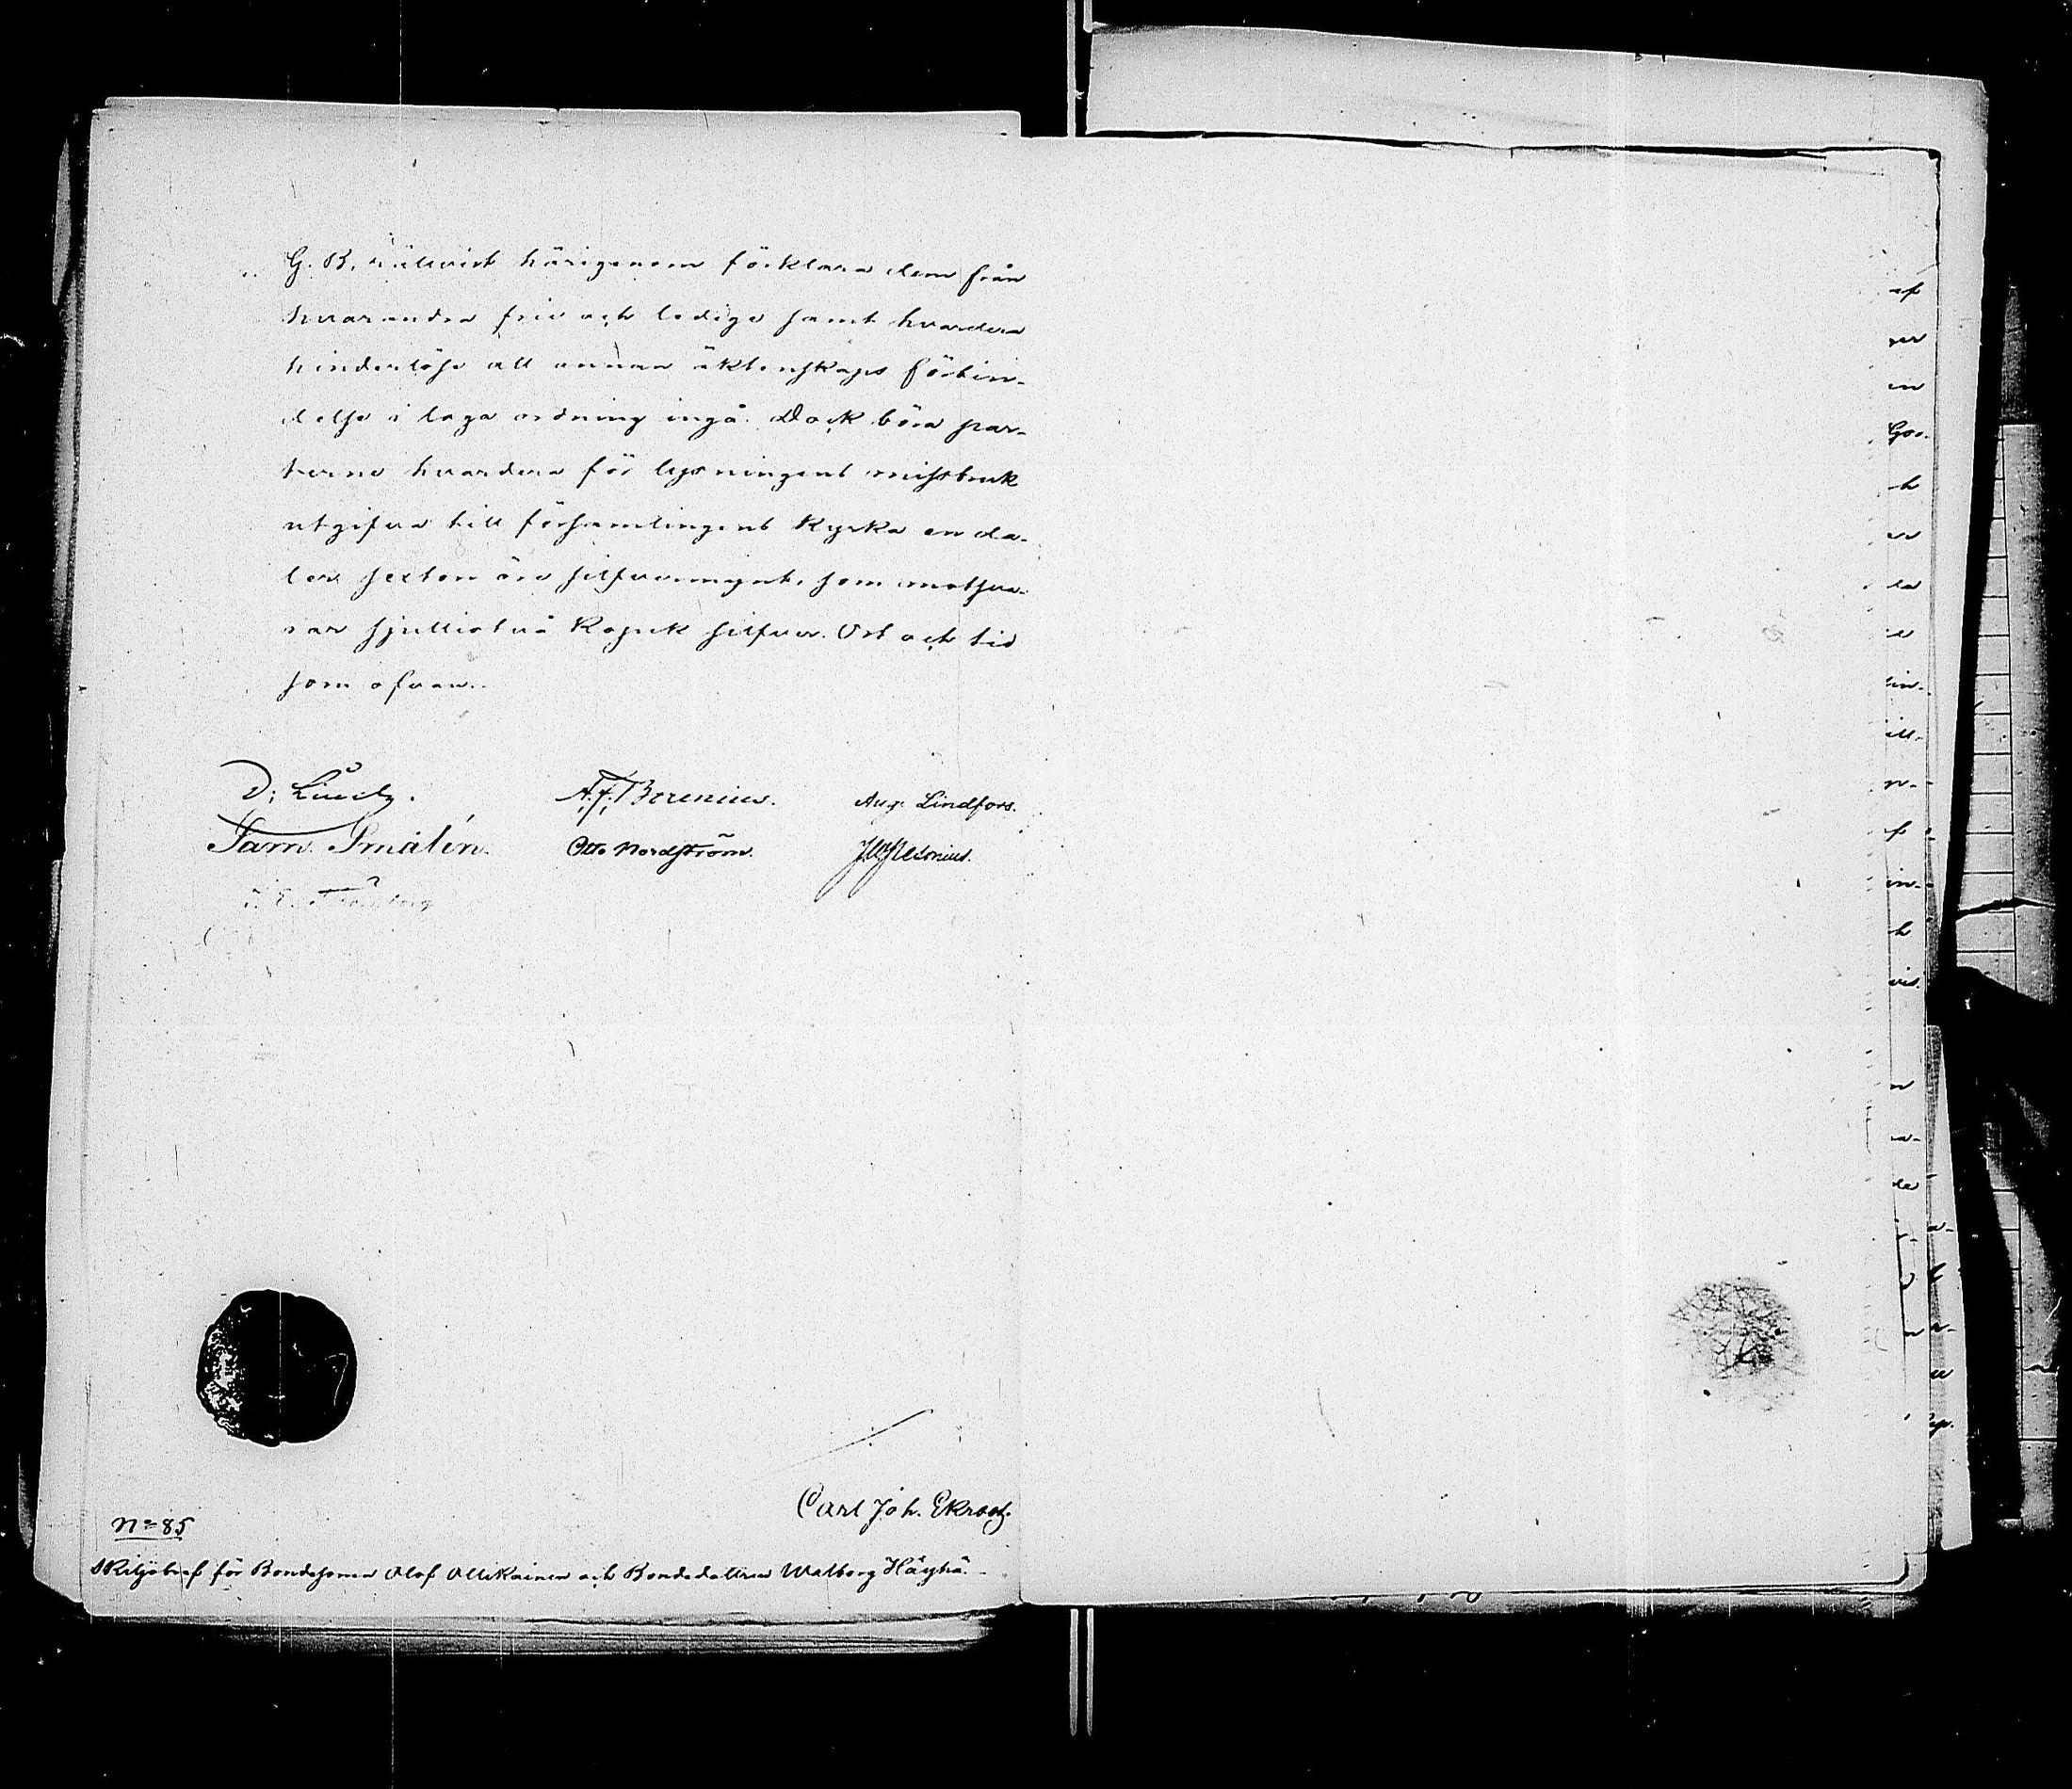 G. B. rättvist härigenom förklara dem från
hvarandra frie och ledige samt hvardera
hinderlöse att annan äktenskaps förbin-
delse i laga ordning ingå. Dock böra par-
terne hvardera för lysningens missbruk
utgifva till församlingens Kyrka en da-
ler sexton öre silfvermynt, som motsva-
rar sjuttiotvå Kopek silfver. Ort och tid
som ofvan.
A. F. Borenius.
Aug. Lindfors.
Sam. Smalén.
Otto Nordström.
Carl Joh. Ekroos.
No 85
Skiljobref för Bondesonen Olof Ollikainen och Bondedottren Walborg Häyhä.